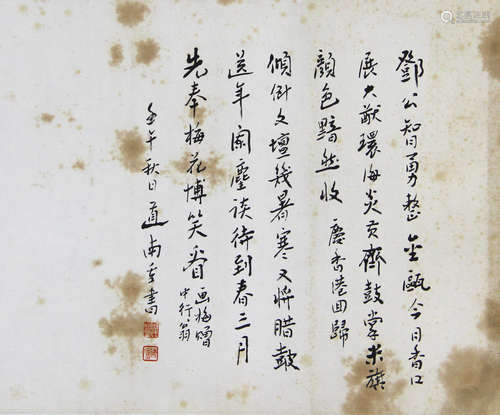 鄧公智勇整金甌今日香口
展大猷環海炎黃齊鼓掌米旗
顏色黯然收 慶香港回歸
傾倒文壇幾暑寒又將腊鼓
送年闌塵談待到春三月
先奉梅花博笑看 画梅贈
中行翁
壬午秋日道南手書